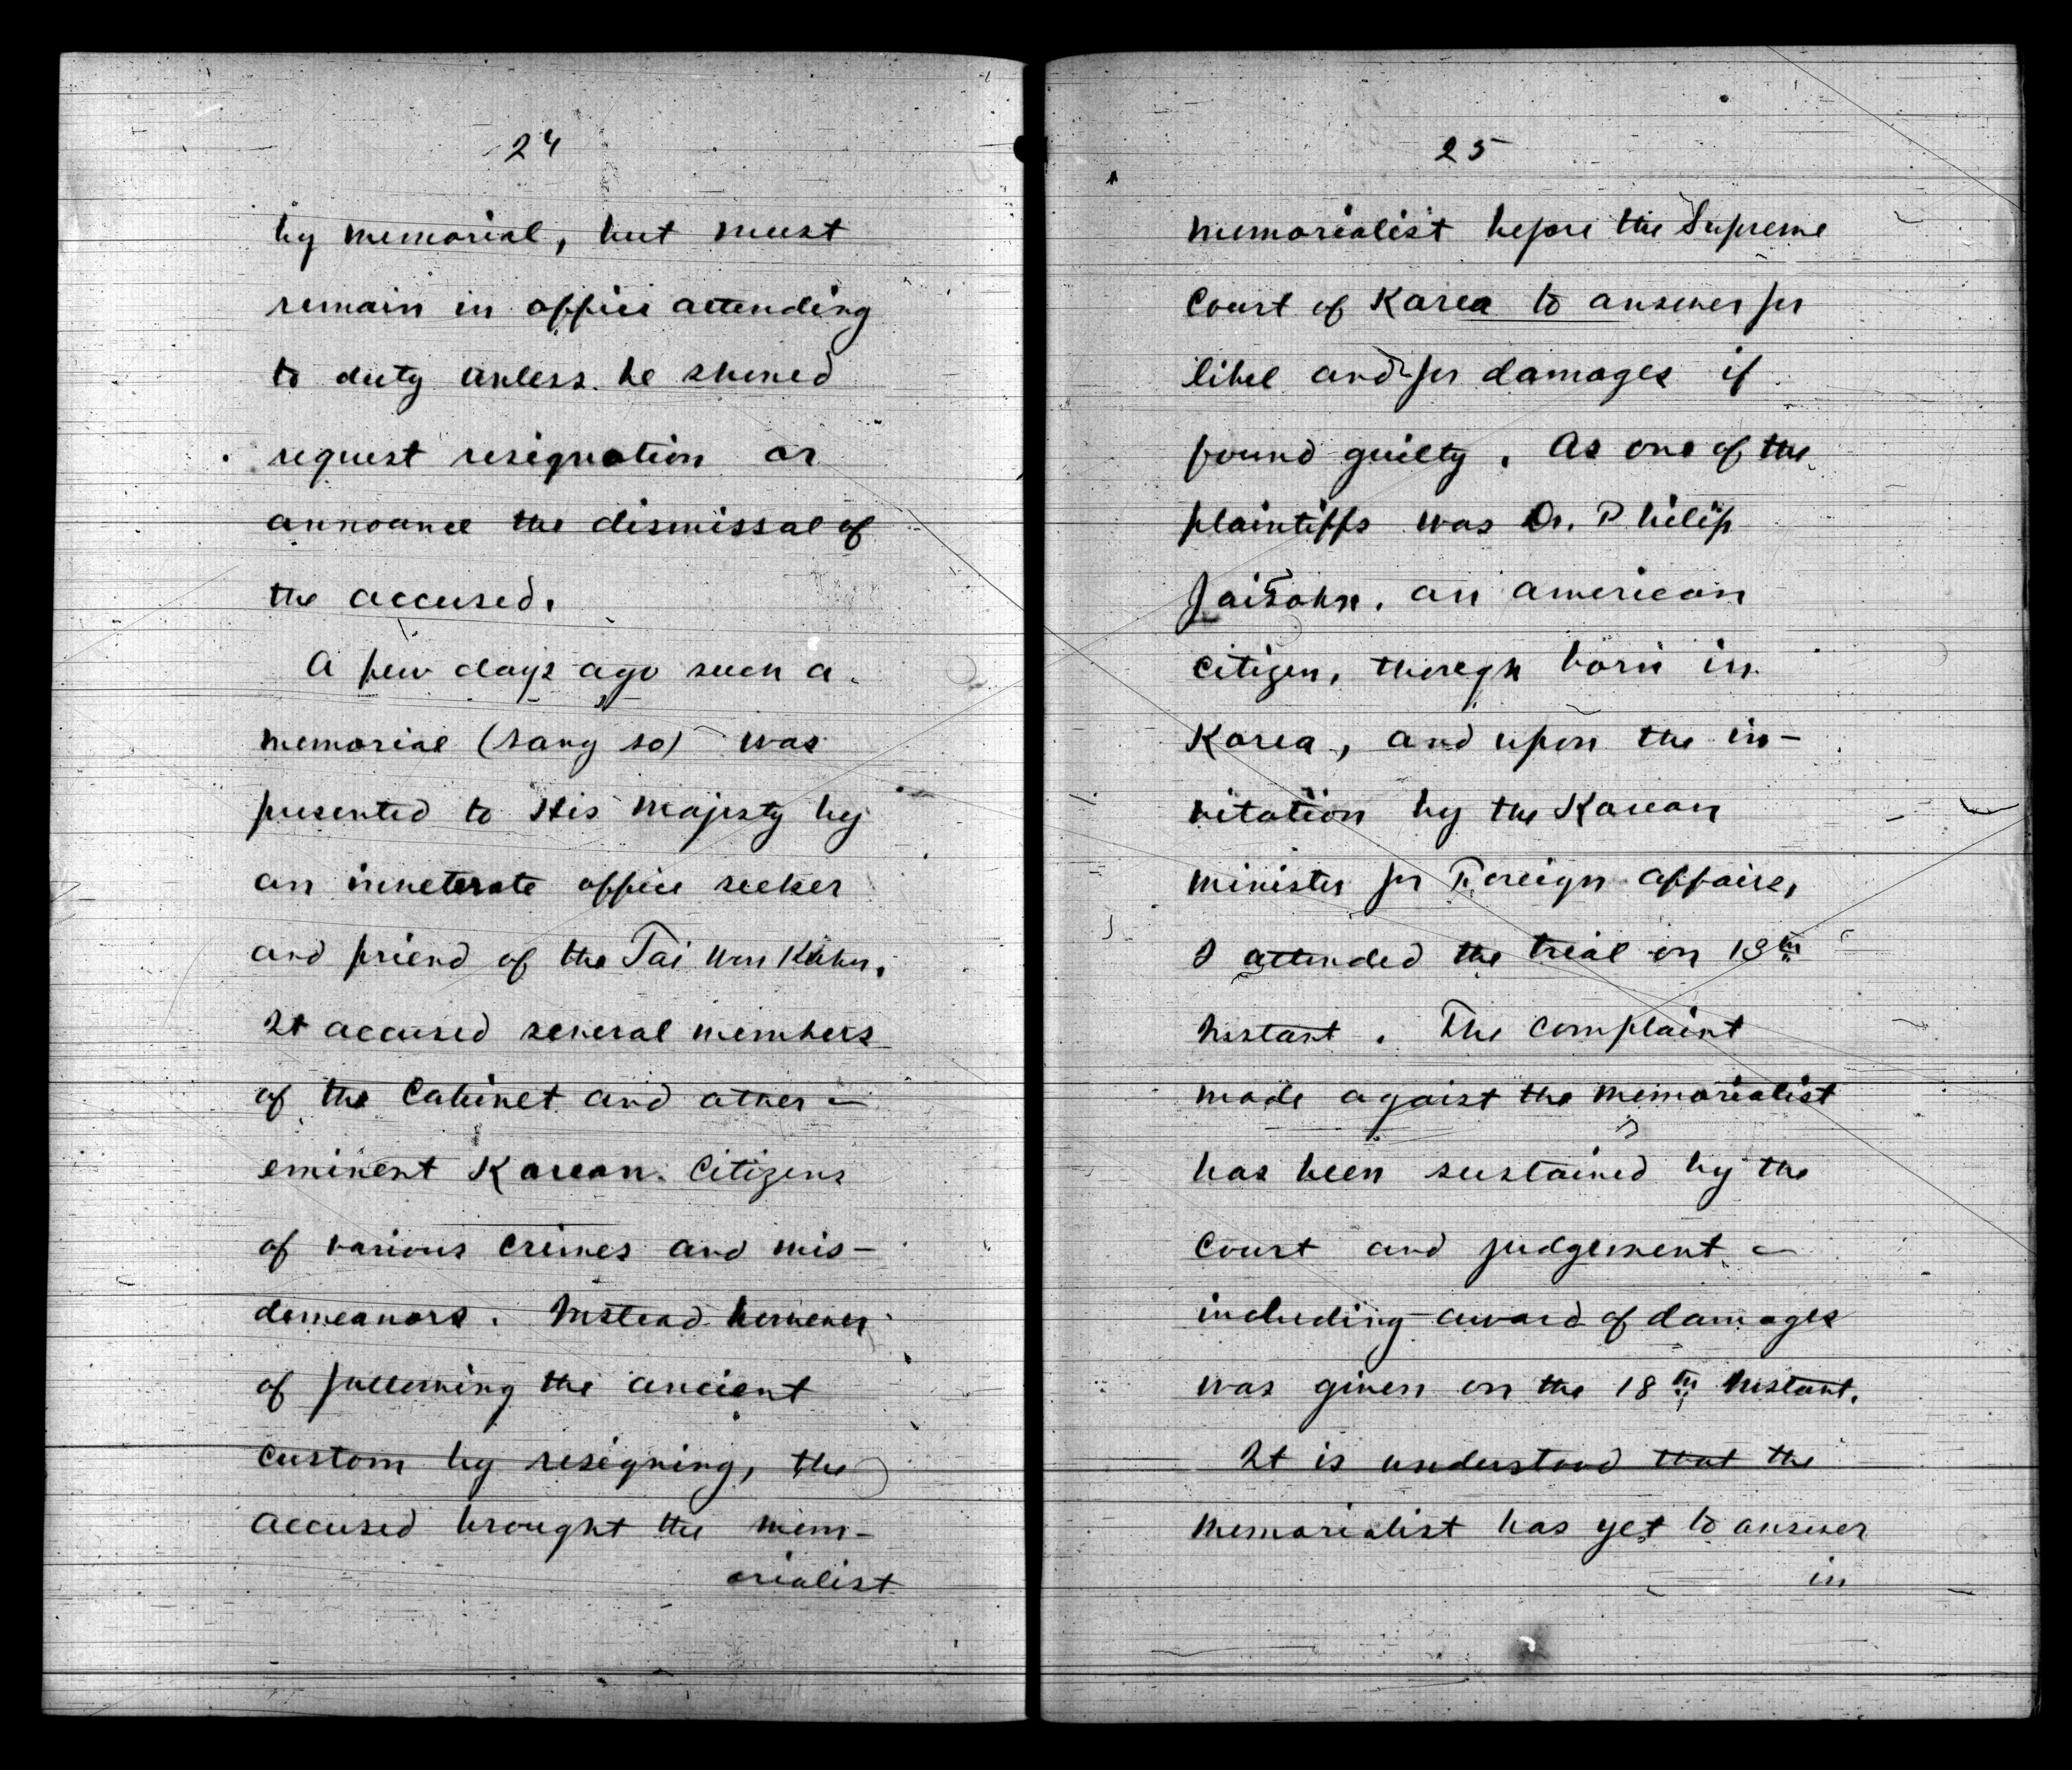 24
by memorial, but must
remain in office attending
to duty unless he should
request resignation or
announce the dismissal of
the accused.
A few days ago such a
memorial (sang so) was
presented to His Majesty by
an inveterate office seeker
and friend of the Tai Won Kuhn.
It accused several members
of the Cabinet and other
eminent Korean Citizens
of various crimes and mis-
demeanors. Instead however
of following the ancient
custom by resigning, the
accused brought the mem-
orialist
25
memorialist before the Supreme
Court of Korea to answer for
libel and for damages if
found guilty. As one of the
plaintiffs was Dr. Philip
Jaisohn, an American
citizen, though born in
Korea, and upon the in-
vitation by the Korean
Minister for Foreign Affairs,
I attended the trial on 13th
Instant. The complaint
made agaist the memorialist
has been sustained by the
Court and judgement
including award of damages
was given on the 18th Instant.
It is understood that the
memorialist has yet to answer
in